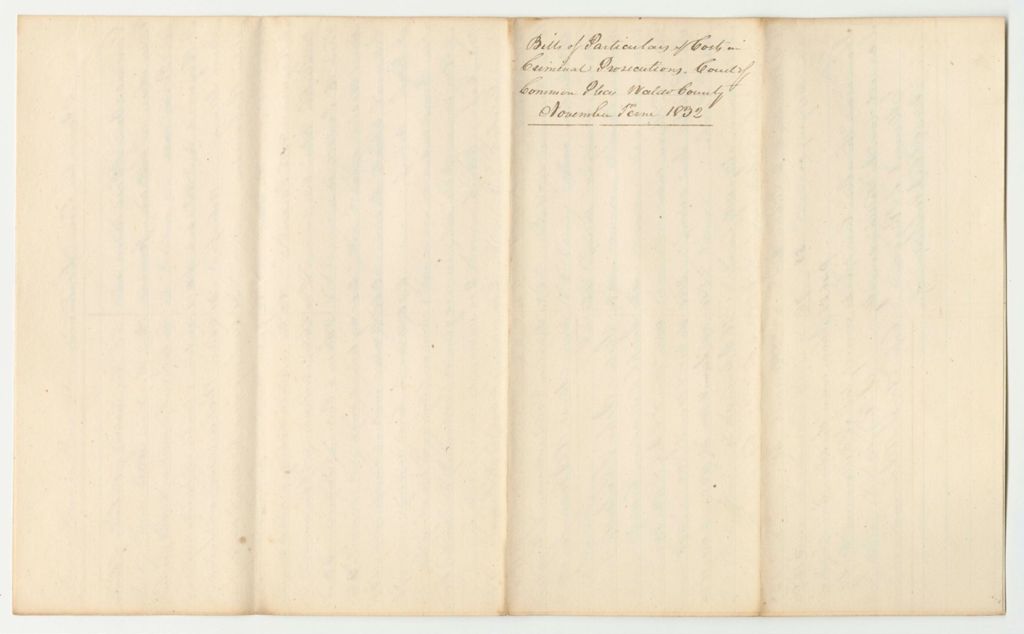 Bills of Particulars of Costs in
Criminal Prosecutions. Court of
Common Pleas Waldo County
November Term 1832